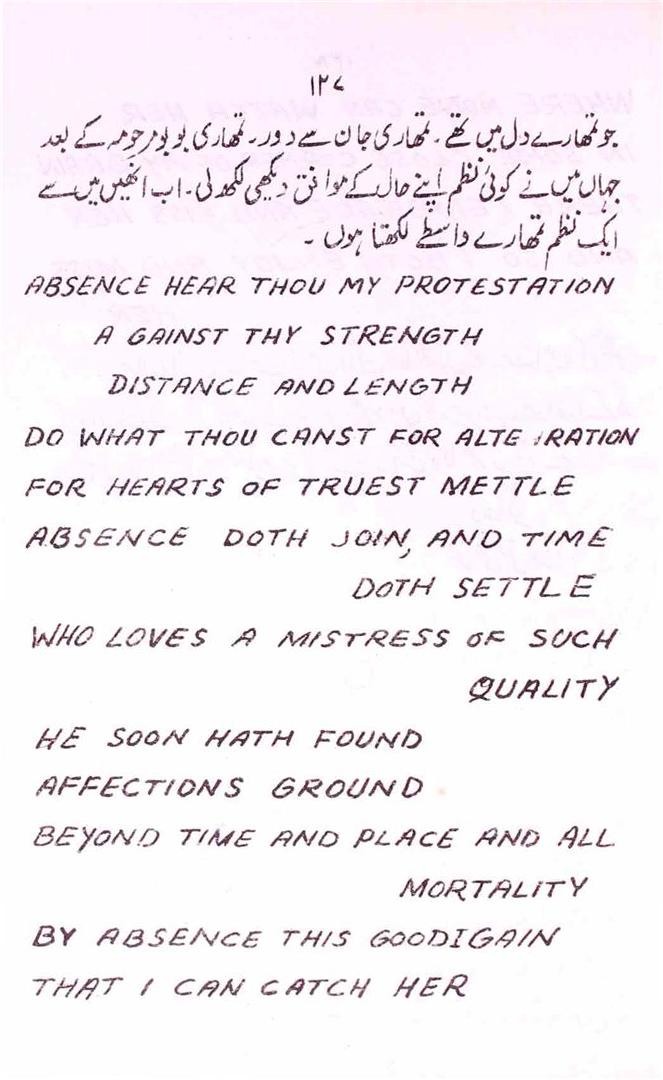 ۱۲۷
جو تمھارے دل میں تھے ۔ تمھاری جان سے دور ۔ تمھاری بوبو مرحومہ کے بعد
جہاں میں نے کوئی نظم اپنے حال کے موافق دیکھی لکھ لی ۔ اب انھیں میں سے
ایک نظم تمھارے واسطے لکھتا ہوں ۔
ABSENCE HEAR THOU MY PROTESTATION
A GAINST THY STRENGTH
DISTANCE AND LENGTH
DO WHAT THOU CANST FOR ALTE RATION
FOR HEARTS OF TRUEST METTLE
ABSENCE DOTH JOIN, AND TIME
DOTH SETTLE
WHO LOVES A MISTRESS OF SUCH
QUALITY
HE SOON HATH FOUND
AFFECTIONS GROUND
BEYOND TIME AND PLACE AND ALL
MORTALITY
BY ABSENCE THIS GOODIGAIN
THAT I CAN CATCH HER